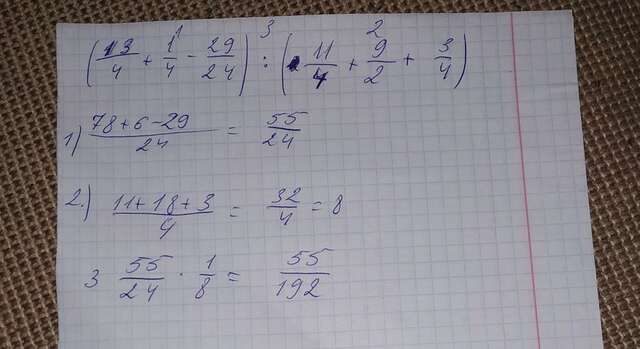 (13/4 + 1/4 - 29/24) : (11/4 + 9/2 + 3/4)
1) (78+6-29)/24 = 55/24
2.) (11+18+3)/4 = 32/4 = 8
3 55/24 · 1/8 = 55/192